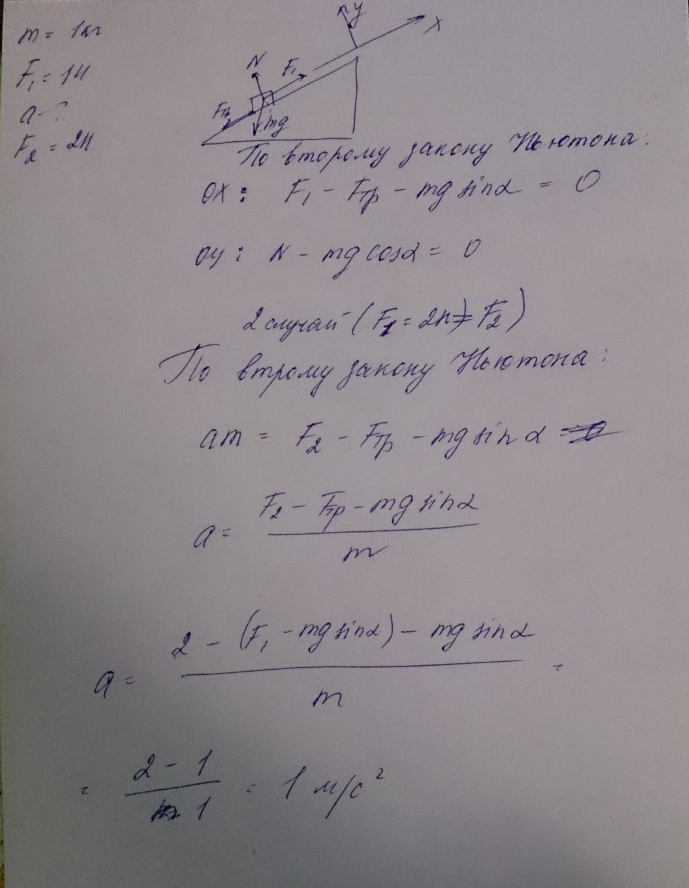 m = 1кг
F₁ = 1Н
a - ?
F₂ = 2Н
y
X
N
F₁
Fтр
mg
По второму закону Ньютона:
OX: F₁ - Fтр - mg sinα = 0
OY: N - mg cosα = 0
2 случай (F₁ = 2Н = F₂)
По втрому закону Ньютона:
am = F₂ - Fтр - mg sin α
a = (F₂ - Fтр - mg sinα) / m
a = (2 - (F₁ - mg sinα) - mg sinα) / m =
= (2 - 1) / 1 = 1 м/с²